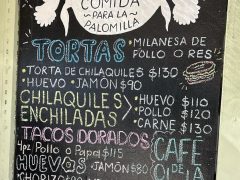 COMIDA
PARA LA
PALOMILLA
TORTAS
• MILANESA DE
POLLO O RES
• TORTA DE CHILAQUILES $130
• HUEVO • JAMÓN $90
CHILAQUILES Y
ENCHILADAS
• HUEVO $110
• POLLO $120
• CARNE $130
TACOS DORADOS
4pz Pollo o Papa $115
CAFÉ
DE
HUEVOS
• JAMÓN $80